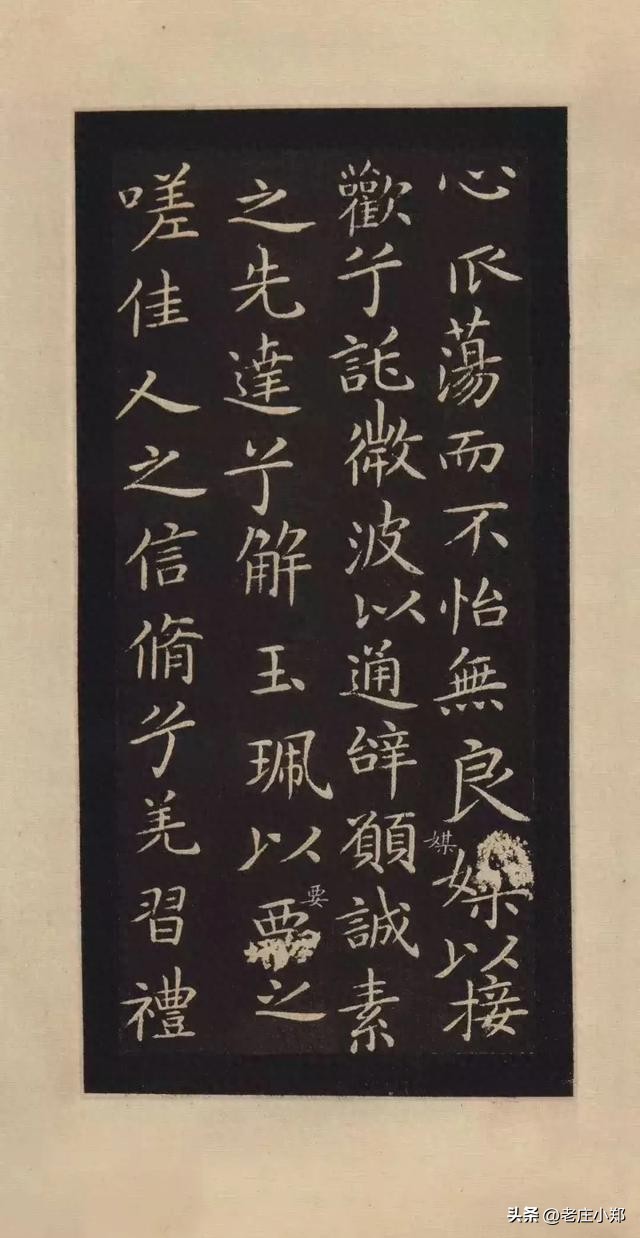 心𠂢蕩而不怡無良媒以接
媒
歡兮託微波以通辝願誠素
之先達兮解玉珮以要之
要
嗟佳人之信脩兮羌習禮
头条 @老庄小郑